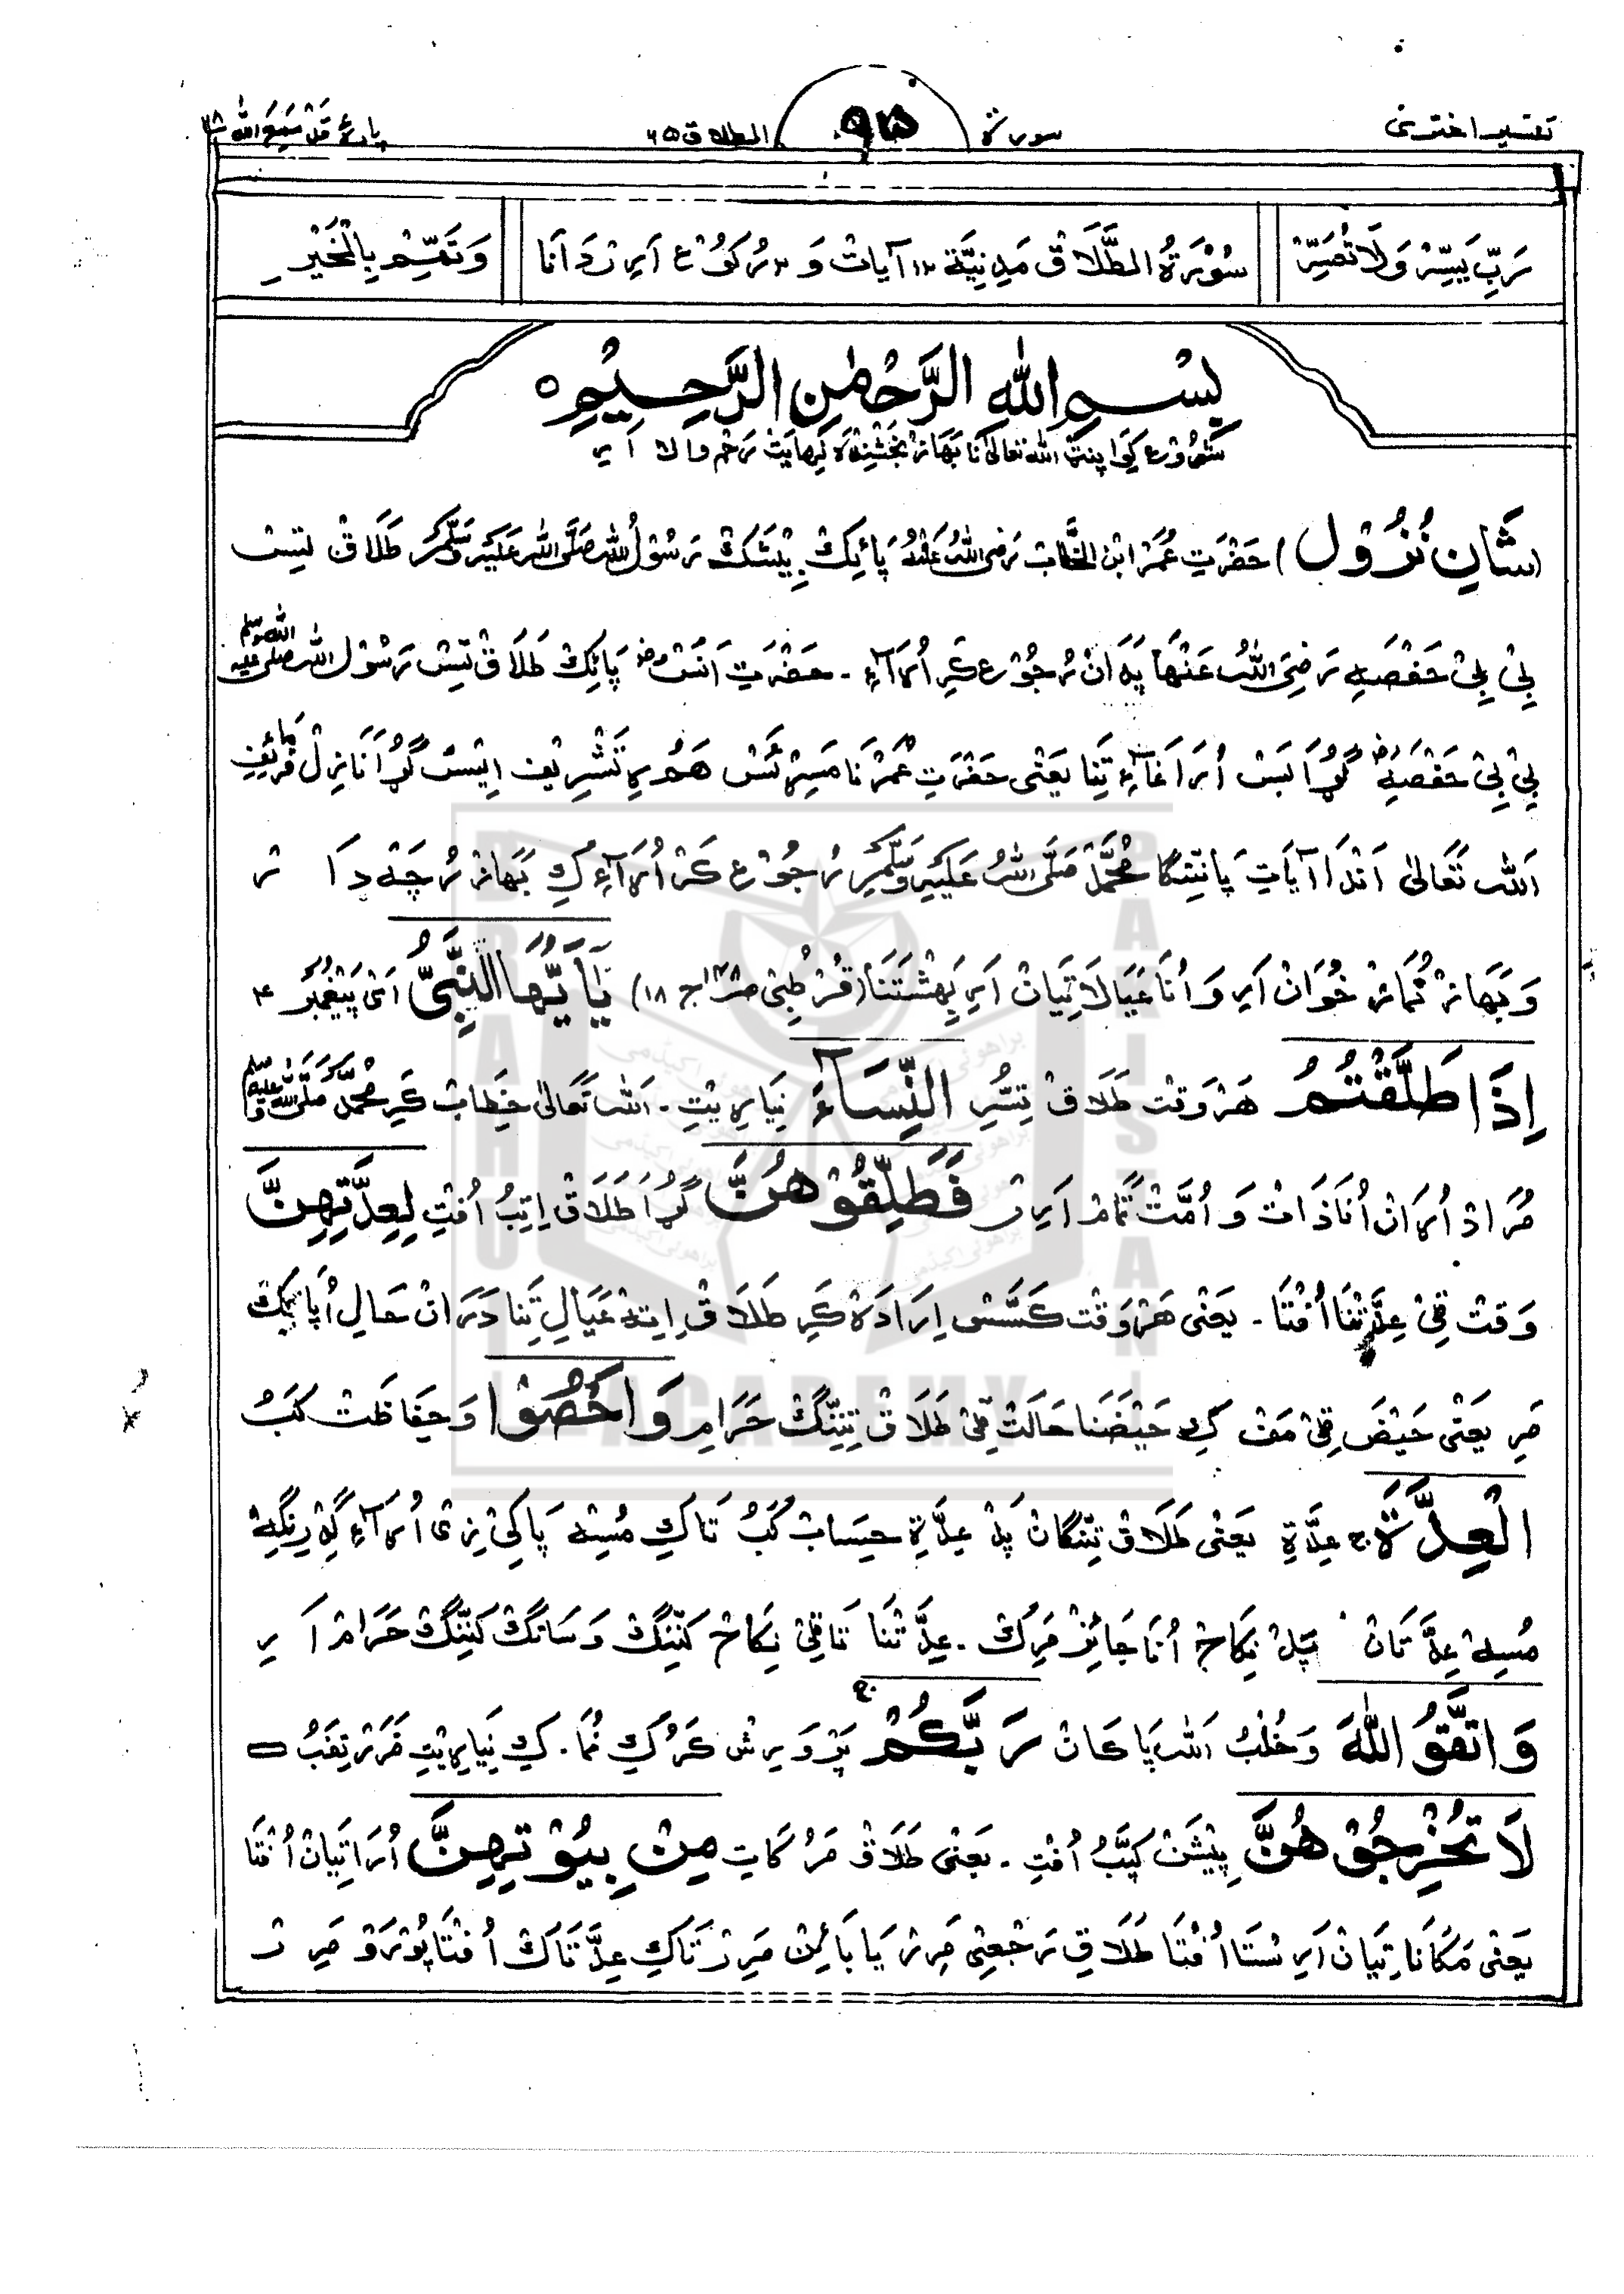 تفسیر اختری سورۃ ۹۵ الطلاق ۶۵ پارۂ قَدْ سَمِعَ اللّٰہ ۲۸
رَبِّ یَسِّرْ وَلَا تُعَسِّرْ سُوْرَۃُ الطَّلَاقْ مَدِنِیَّۃ ۱۲ آیاتْ وَ ۲ رُکُوْع اَرِیرْ دَاَنَا وَتَمِّمْ بِالْخَیْرِ
بِسْمِ اللّٰهِ الرَّحْمٰنِ الرَّحِیْمِ ○
شُرُوْع کِیوَا پِنتْ اللّٰہ تعالیٰ نَا بَھَازْ بَخْشِنْدَہ نِہایَتْ رَحم والا اَ رِ
(شَانِ نُزُوْل) حَضْرَتِ عُمَرْ ابْنُ الخَطَّابْ رَضِیَ اللہُ عَنْہُ پَائِکْ بِیْشَکْ رَسُوْلُ اللہ صَلَّی اللہ عَلَیْہِ وَسَلَّمَ طَلَاقْ تِیسْ
بِیْ بِیْ حَفْصَہ رَضِیَ اللہُ عَنْہَا پَدَانْ رُجُوْع کَرِ اُرَآءِ ۔ حَضْرَتِ اَنَسْ رض پَائِکْ طَلَاقْ تِیسْ رَسُوْل اللہ صلی اللہ علیہ وسلم
بِیْ بِیْ حَفْصَہ رض گُڑَا بَسْ اُرَاغَآءِ تِنَا یَعْنِی حَضْرَتِ عُمَرْ نَا مَسِرْ ئَسْ ھَمْرِ تَشْرِیْف اِیْسْ گُڑَا نَازِلْ فَرْمَائِفِ
اَللہ تَعَالیٰ اَنْدَا آیَاتِ پَانِنْگَا مُحَمَّدْ صَلَّی اللہُ عَلَیْہِ وَسَلَّمَ رُجُوْع کَرْ اُرَآءِ کِ بَھَازْ رُچَہ دَا رْ
وَ بَھَازْ نُمَازْ خُوَانْ اَرِ وَ اُنَا عَیَالَاتِیَانْ اَرِ بَہِشْتَنَا (قُرْطُبِیْ ج ۱۸) یٰۤاَیُّهَا النَّبِیُّ اَیْ پَیْغَمْبَرْ
اِذَا طَلَّقْتُمُ ھَرْوَقْتْ طَلَاقْ تِسُّرِ النِّسَآءَ نِیَارِیْتِ ۔ اَللہ تَعَالیٰ خِطَابْ کَرِ مُحَمَّدْ صَلَّی اللہُ عَلَیْہِ وَسَلَّمَ
مُرَادْ اُرَانْ اُنَا ذَاتْ وَ اُمَّتْ تَمَامْ اَرِیرْ فَطَلِّقُوْهُنَّ گُڑَا طَلَاقْ اِتِبُ اُفْتِ لِعِدَّتِهِنَّ
وَقْتْ قِیْ عِدَّتْنَا اُفْتَا ۔ یَعْنِی ھَرْوَقْتْ کَسَّسْ اِرَادَہ کَرِ طَلَاقْ اِتِہ عَیَالِ تِنَا دَرَانْ حَالِ اُ پَائِکْ
مَرِ یَعْنِی حَیْضَ قِیْ مَفْ کِہ حَیْضَنَا حَالَتْ قِیْ طَلَاقْ تِنِّنْگْ حَرَامِ وَاَحْصُوا وَ حِفَاظَتْ کَبُ
الْعِدَّةَ ج عِدَّۃِ یَعْنِی طَلَاقْ تِنِّنْگَانْ پَدْ عِدَّۃِ حِسَابْ کَبُ تَاکِ مُسِہ پَاکِیْ زِیْ اُرَآءِ گِدْرِنْگِہ
مُسِہ عِدَّتَانْ پَدْ نِکَاحْ اُنَا جَائِزْ مَرِکْ ۔ عِدَّتْنَا تَا قِیْ نِکَاحْ کَنِّنْگْ وَ سَانْگْ کَنِّنْگْ حَرَامْ اَ رِ
وَاتَّقُوا اللّٰهَ وَ خُلْبُ اَللہ پَا کَانْ رَبَّكُمْ ج پَرْوَرِشْ کَرُکِ نُمَا ۔ کِ نِیَارِیْتِ ضَرَرْ تِفَبُ
لَا تُخْرِجُوْهُنَّ پِیْشَنْ کَپَّبُ اُفْتِ ۔ یَعْنِی طَلَاقْ مَرُکَاتِ مِنْۢ بُیُوْتِهِنَّ اُرَاتِیَانْ اُفْتَا
یَعْنِی مَکَانَاتِیَانْ اَرِ سْتَا اُفْتَا طَلَاقِ رَجْعِیْ مَرِرْ یَا بَائِنْ مَرِرْ تَاکِ عِدَّتَاکْ اُفْتَا پُوْرَوْ مَرِ رْ
BRAHUI ACADEMY PAKISTAN